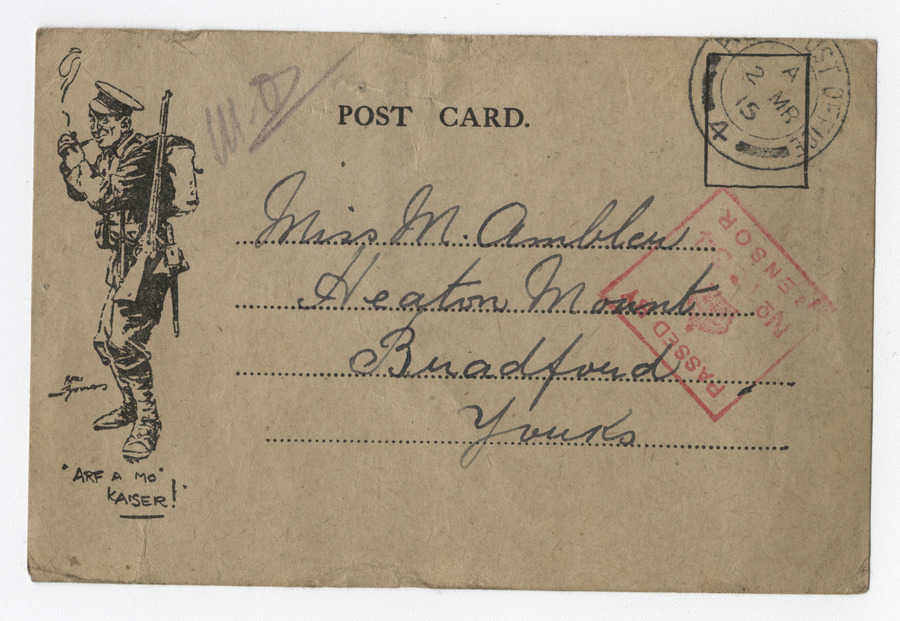 POST CARD.
POST OFFICE
A
2 MR
15
4
PASSED BY
No
CENSOR
Miss M. Ambler
Heaton Mount
Bradford
Yorks
BERT
THOMAS
"ARF A MO"
KAISER!